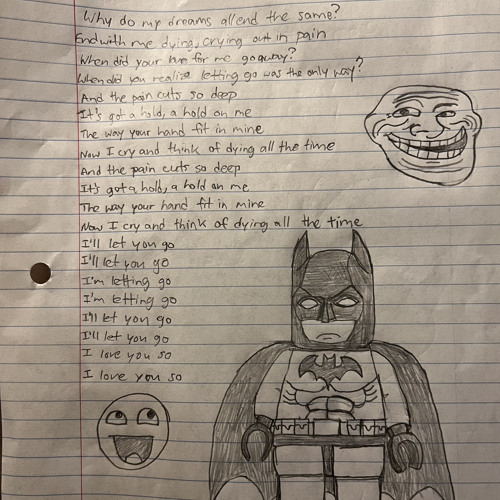 Why do my dreams all end the same?
End with me dying, crying out in pain
When did your love for me go away?
When did you realize letting go was the only way?
And the pain cuts so deep
It's got a hold, a hold on me
The way your hand fit in mine
Now I cry and think of dying all the time
And the pain cuts so deep
It's got a hold, a hold on me
The way your hand fit in mine
Now I cry and think of dying all the time
I'll let you go
I'll let you go
I'm letting go
I'm letting go
I'll let you go
I'll let you go
I love you so
I love you so